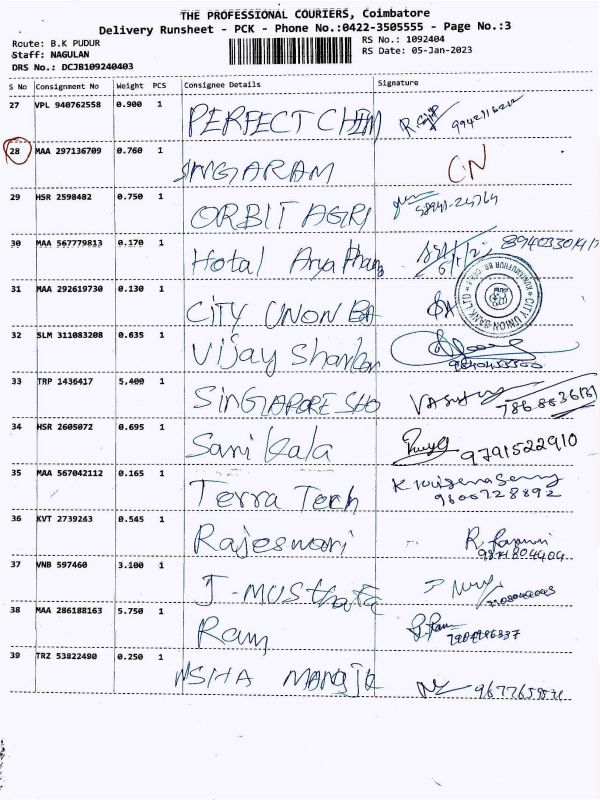 THE PROFESSIONAL COURIERS, Coimbatore
Delivery Runsheet - PCK - Phone No.:0422-3505555 - Page No.:3
Route: B.K PUDUR
RS No.: 1092404
Staff: NAGULAN
RS Date: 05-Jan-2023
DRS No.: DCJB109240403
S No Consignment No Weight PCS Consignee Details Signature
27 VPL 940762558 0.900 1 PERFECT CHEM
28 MAA 297136709 0.760 1 SINGARAM CN
29 HSR 2598482 0.750 1 ORBIT AGRI
30 MAA 567779813 0.170 1 Hotal Arya
31 MAA 292619730 0.130 1 CiTY UNON BA
CITY UNION BANK LTD
32 SLM 311083208 0.635 1 Vijay Shankar
33 TRP 1436417 5.400 1 SiNGAPORE SHO
34 HSR 2605072 0.695 1 Sani Kala 9791522910
35 MAA 567042112 0.165 1 Terra Tech 9600728892
36 KVT 2739263 0.545 1 Rajeswari
37 VNB 597460 3.100 1 J-MUSthafa
38 MAA 286188163 5.750 1 Ram
39 TRZ 53822490 0.250 1